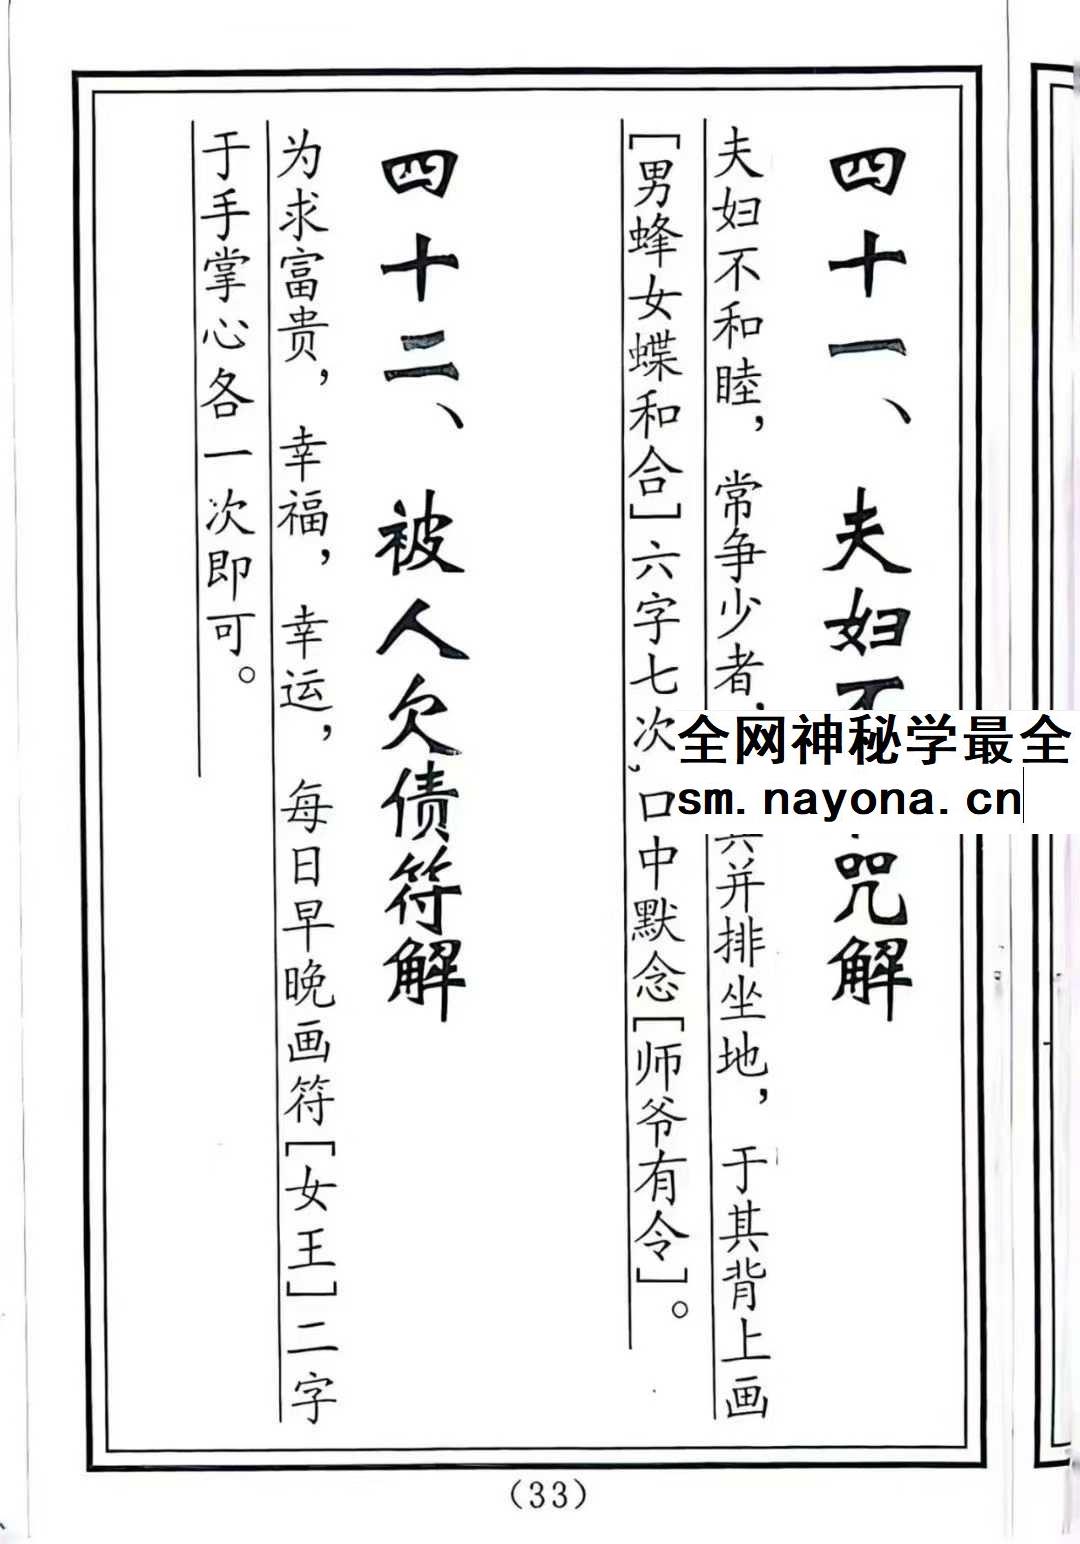 四十一、夫妇不咒解
夫妇不和睦，常争少者，其并排坐地，于其背上画
[男蜂女蝶和合]六字七次，口中默念[师爷有令]。
四十二、被人欠债符解
为求富贵，幸福，幸运，每日早晚画符[女王]二字
于手掌心各一次即可。
全网神秘学最全
sm.nayona.cn
(33)